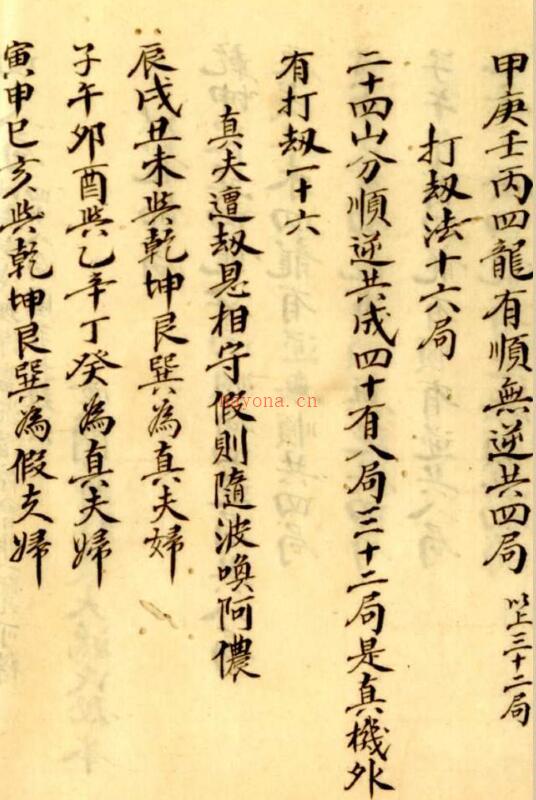 甲庚壬丙四龍有順無逆共四局 以上三十二局
打刼法十六局
二十四山分順逆共成四十有八局三十二局是真機外
有打刼一十六
真夫遭刼恳相守假則隨波喚阿儂
辰戌丑未與乾坤艮巽為真夫婦
子午卯酉與乙辛丁癸為真夫婦
寅申巳亥與乾坤艮巽為假夫婦
nayona.cn